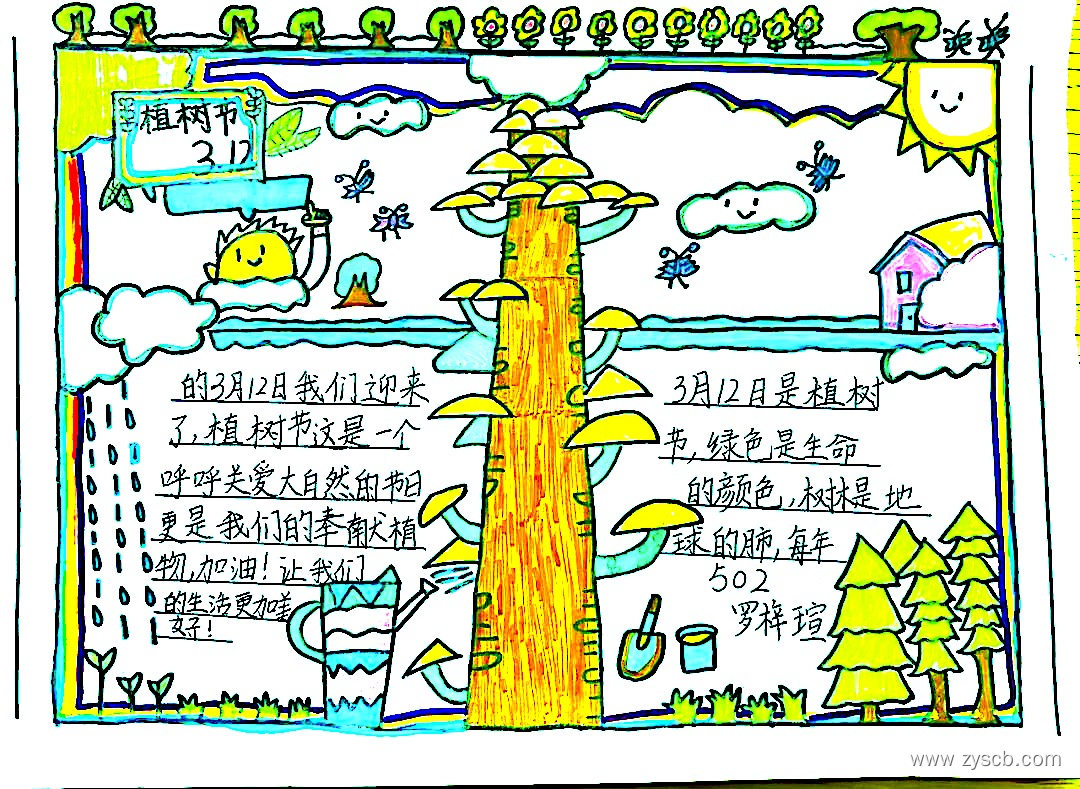 植树节
3.12
的3月12日我们迎来
了,植树节这是一个
呼呼关爱大自然的节日
更是我们的奉献植
物,加油!让我们
的生活更加美
好!
3月12日是植树
节,绿色是生命
的颜色,树林是地
球的肺,每年
502
罗梓瑄
www.zyscb.com